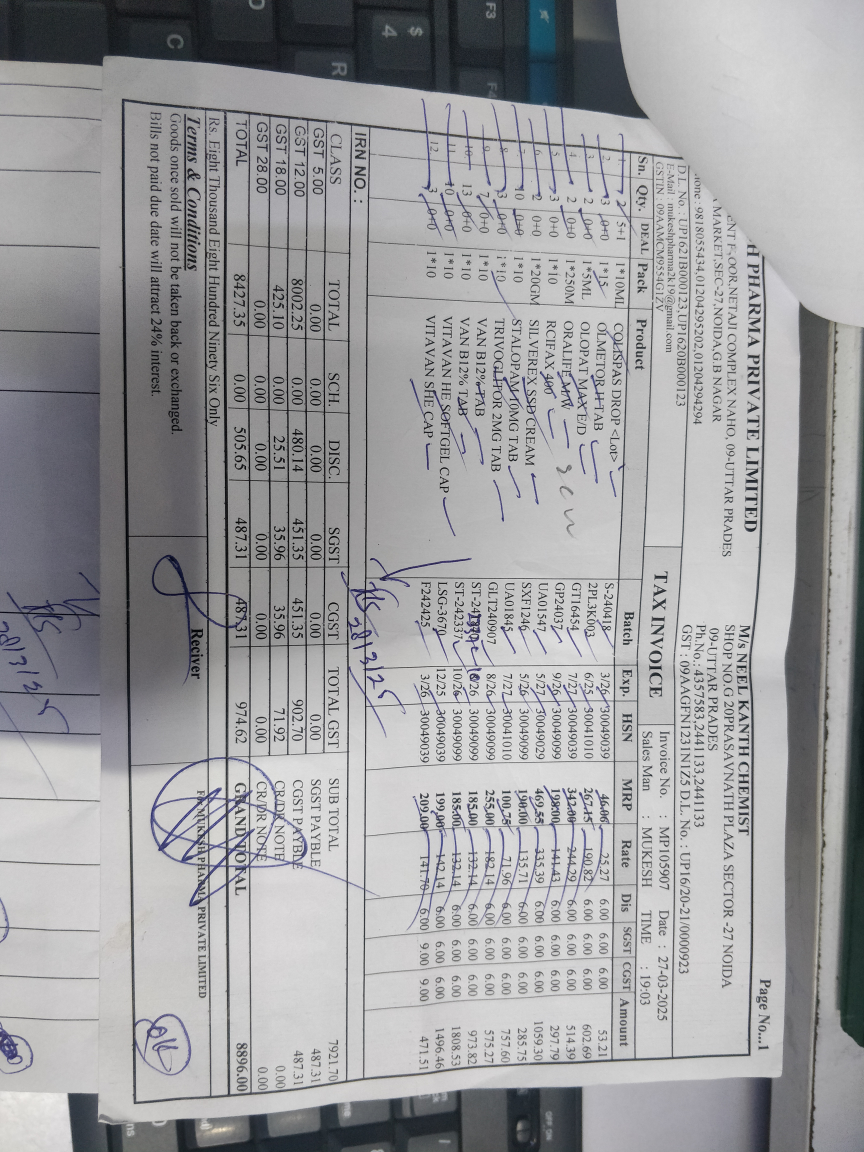 H PHARMA PRIVATE LIMITED
ENT F-OOR,NETAJI COMPLEX NAHO, 09-UTTAR PRADES
MARKET,SEC-27,NOIDA,G.B NAGAR
hone : 9818055434,01204295202,01204294294
D.L.No. : UP1621B000123,UP1620B000123
E-Mail : mukeshpharma2k19@gmail.com
GSTIN : 09AAMCM9554G1ZV
Page No...1
M/s NEEL KANTH CHEMIST
SHOP NO,G 20PRASAVNATH PLAZA SECTOR -27 NOIDA
09-UTTAR PRADES
Ph.No.: 4357583,2441133,2441133
GST : 09AAGFN1231N1Z5 D.L. No. : UP16/20-21/0000923
TAX INVOICE
Invoice No. : MP105907 Date : 27-03-2025
Sales Man : MUKESH TIME : 19:03
Sn. Qty. DEAL Pack Product Batch Exp. HSN MRP Rate Dis SGST CGST Amount
1 2 5+1 1*10ML COLISPAS DROP <Lot> S-240418 3/26 30049039 46.06 25.27 6.00 6.00 6.00 53.21
2 3 0+0 1*15 OLMETOR H TAB 2PL3K003 6/25 30041010 267.15 190.82 6.00 6.00 6.00 602.69
3 2 0+0 1*5ML OLOPAT MAX E/D GT16454 7/27 30049039 342.00 244.29 6.00 6.00 6.00 514.39
4 2 0+0 1*250M ORALIFE M/W GP24037 9/26 30049099 198.00 141.43 6.00 6.00 6.00 297.79
5 3 0+0 1*10 RCIFAX 400 UA01547 5/27 30049029 469.55 335.39 6.00 6.00 6.00 1059.30
6 2 0+0 1*20GM SILVEREX SSD CREAM SXF1246 5/26 30049099 190.00 135.71 6.00 6.00 6.00 285.75
7 10 0+0 1*10 STALOPAM 10MG TAB UA01845 7/27 30041010 100.75 71.96 6.00 6.00 6.00 757.60
8 3 0+0 1*10 TRIVOGLITOR 2MG TAB GLT240907 8/26 30049099 255.00 182.14 6.00 6.00 6.00 575.27
9 7 0+0 1*10 VAN B12% TAB /26 30049099 185.00 132.14 6.00 6.00 6.00 973.82
10 13 0+0 1*10 VAN B12% TAB ST-242337 10/26 30049099 185.00 132.14 6.00 6.00 6.00 1808.53
11 10 0+0 1*10 VITAVAN HE SOFTGEL CAP LSG-3670 12/25 30049039 199.00 142.14 6.00 6.00 6.00 1496.46
12 3 0+0 1*10 VITAVAN SHE CAP F242425 3/26 30049039 209.00 141.70 6.00 9.00 9.00 471.51
IRN NO. :
28/3/25
CLASS TOTAL SCH. DISC. SGST CGST TOTAL GST
GST 5.00 0.00 0.00 0.00 0.00 0.00 0.00
GST 12.00 8002.25 0.00 480.14 451.35 451.35 902.70
GST 18.00 425.10 0.00 25.51 35.96 35.96 71.92
GST 28.00 0.00 0.00 0.00 0.00 0.00 0.00
TOTAL 8427.35 0.00 505.65 487.31 487.31 974.62
SUB TOTAL 7921.70
SGST PAYBLE 487.31
CGST PAYBLE 487.31
CR/DR NOTE 0.00
CR/DR NOTE 0.00
GRAND TOTAL 8896.00
Rs. Eight Thousand Eight Hundred Ninety Six Only
Terms & Conditions
Goods once sold will not be taken back or exchanged.
Bills not paid due date will attract 24% interest.
Reciver
MUKESH PHARMA PRIVATE LIMITED